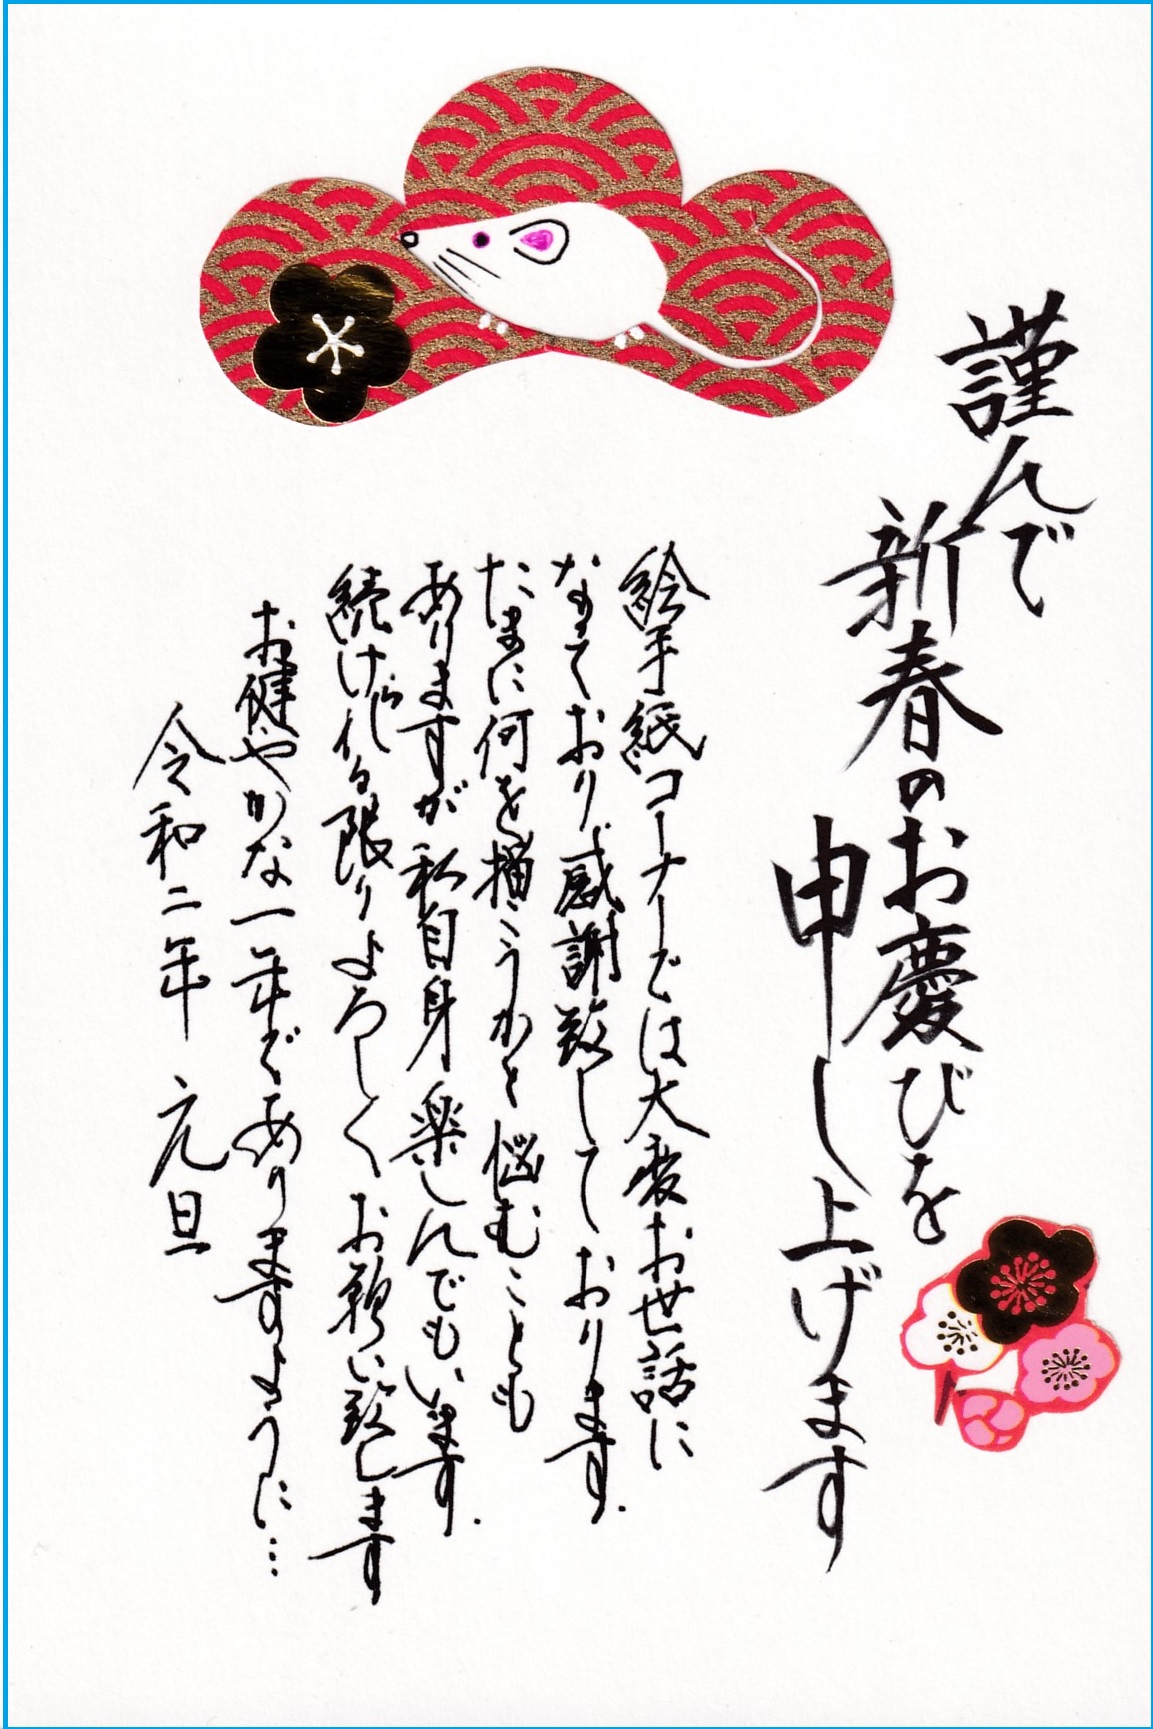 謹んで
新春のお慶びを
申し上げます
絵手紙コーナーでは大変お世話に
なっており感謝致しております.
たまに何を描こうかと悩むことも
ありますが私自身楽しんでもいます.
続けられる限りよろしくお願い致します
お健やかな一年でありますように…
令和二年 元旦